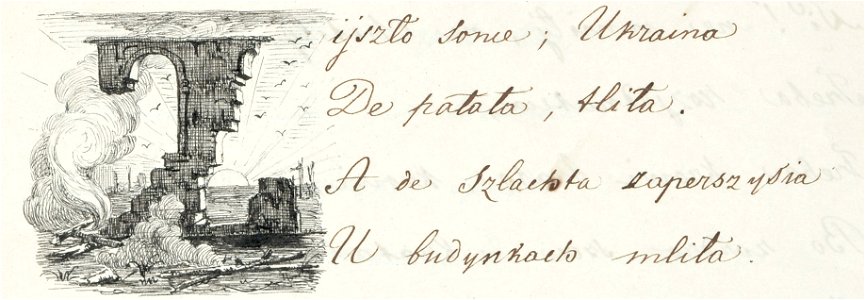 Zijszło sonce; Ukraina
De pałała, tliła.
A de szlachta zaperszysia
U budynkach mliła.